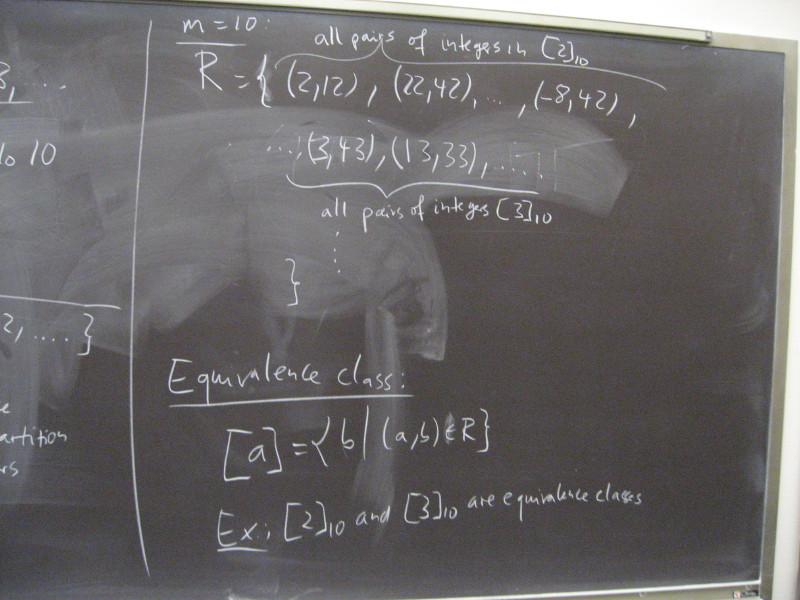 3, ...
lo 10
2, .... }
artition
rs
m = 10:
all pairs of integers in [2]10
R = { (2,12), (22,42), ..., (-8,42),
...,(3,43), (13,33), .....
all pairs of integers [3]10
}
Equivalence class:
[a] = { b | (a,b) ∈ R }
Ex.: [2]10 and [3]10 are equivalence classes